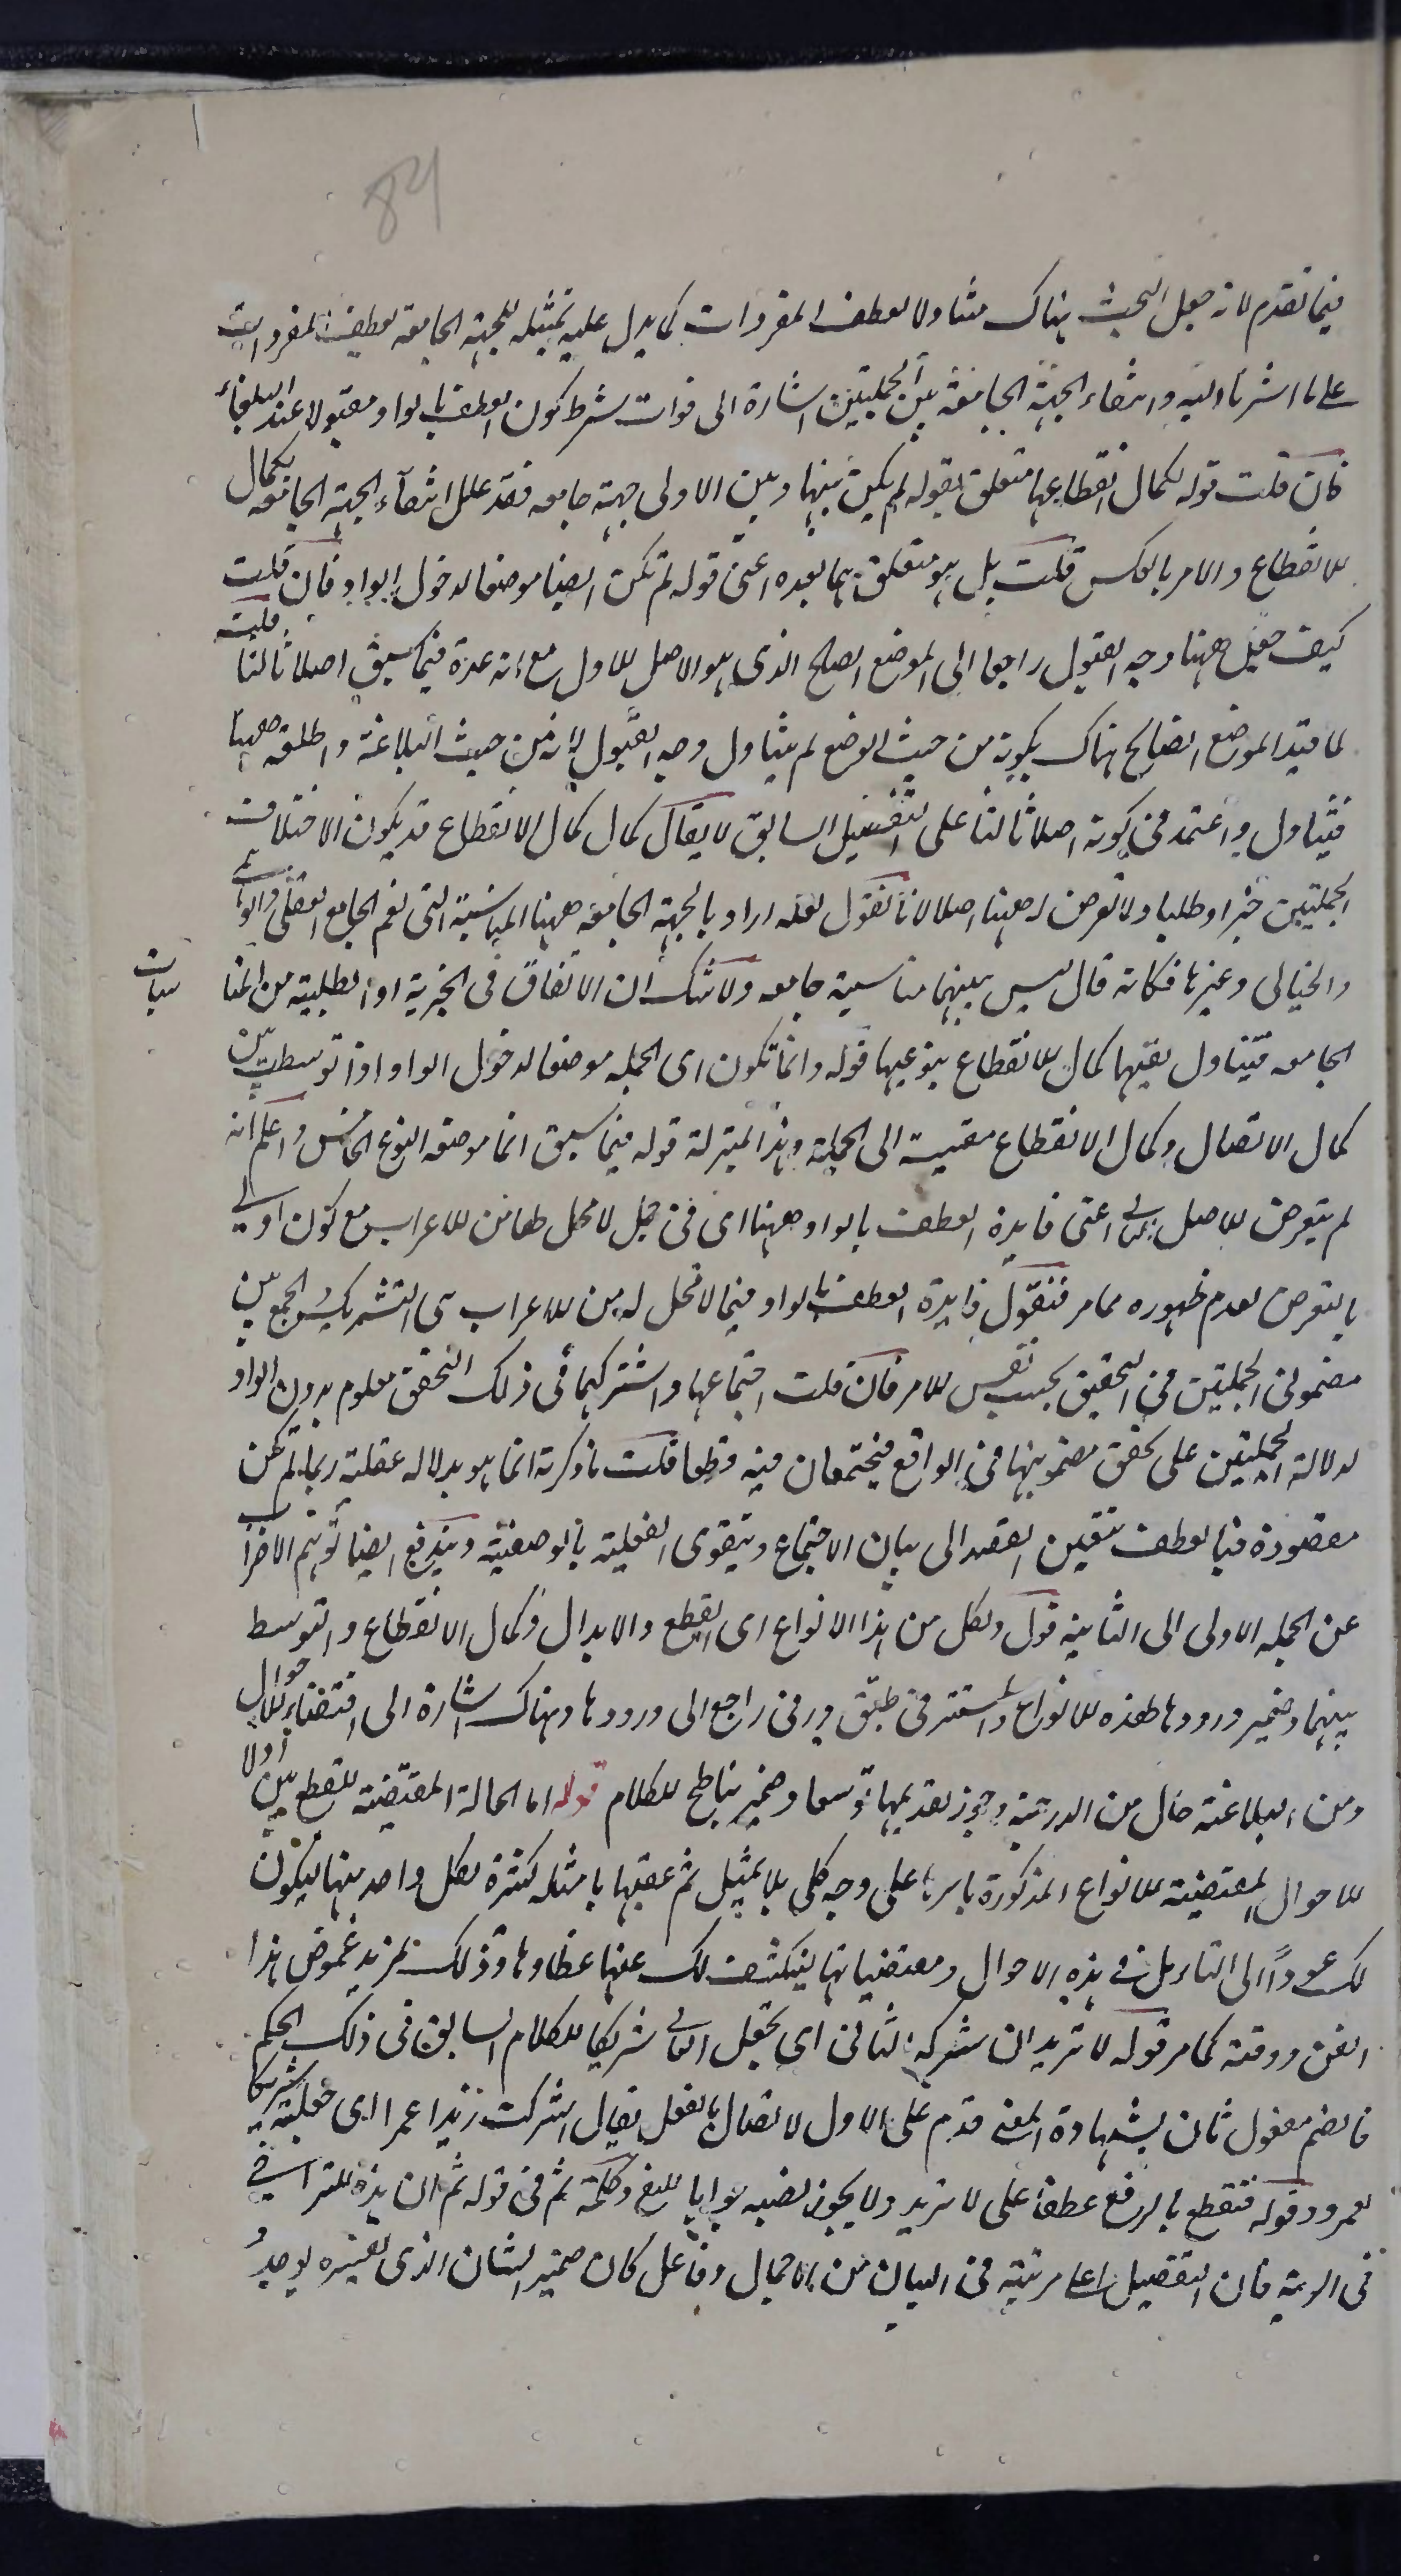 84
فيما تقدم لانه جعل البحث هناك متناولا لعطف المفردات كما يدل عليه تمثيله للجهة الجامعة بعطف المفردات
على ما اشرنا اليه وانتفاء الجهة الجامعة بين الجملتين اشارة الى فوات شرط كون العطف بالواو مقبولا عند البلغاء
فان قلت قوله لكمال انقطاعها متعلق بقوله لم يكن بينها وبين الاولى جهة جامعه فقد علل انتفاء الجهة الجامعه بكمال
الانقطاع والامر بالعكس قلت بل هو متعلق بما بعده اعنى قوله لم تكن ايضا موضعا لدخول الواو فان قلت
كيف جعل ههنا وجه القبول راجعا الى الموضع الصالح الذى هو الاصل الاول مع انه عده فيما سبق اصلا ثالثا قلت
لما قيد الموضع الصالح هناك بكونه من حيث الوضع لم يتناول وجه القبول لانه من حيث البلاغة واطلقه ههنا
فتناول واعتمد فى كونه اصلا ثالثا على التفصيل السابق لا يقال كمال كمال الانقطاع قد يكون الاختلاف
الجملتين خبرا وطلبا ولا تعرض له ههنا اصلا لانا نقول لعله اراد بالجهة الجامعه ههنا المناسبة التى تعم الجامع العقلى والوهمى
والخيالى وغيرها فكانه قال ليس بينهما مناسبة جامعه ولا شك ان الاتفاق فى الخبرية او الطلبية من المنا
سبات
الجامعه فيتناول بقيها كمال الانقطاع بنوعيها قوله وانما تكون اى الجمله موضعا لدخول الواو اذا توسطت بين
كمال الاتصال وكمال الانقطاع مقيسة الى الجملة وهذا بمنزلة قوله فيما سبق انما موضعه النوع الخامس واعلم انه
لم يتعرض للاصل الثانى اعنى فايدة العطف بالواو ههنا اى فى جمل لا محل لها من الاعراب مع كون اولى
بالتعرض لعدم ظهوره مما مر فنقول فايدة العطف بالواو فيما لا محل له من الاعراب هى التشريك والجمع بين
مضمونى الجملتين فى التحقيق بحسب نفس الامر فان قلت اجتماعها واشتراكهما فى ذلك التحقق معلوم بدون الواو
لدلالة الجملتين على تحقق مضمونيها فى الواقع فيجتمعان فيه قطعا قلت ما ذكرته انما هو بدلاله عقلية ربما لم تكن
مقصودة فبالعطف يتعين القصد الى بيان الاجتماع ويتقوى العقلية بالوضعية ويندفع ايضا توهم الاضراب
عن الجمله الاولى الى الثانية قوله ولكل من هذا الانواع اى القطع والابدال وكمال الانقطاع والتوسط
بينهما وضمير ورودها لهذه الانواع والمستتر فى طبق ورفى راجع الى ورودها وهناك اشارة الى اقتضاء الاحوال
ومن البلاغة حال من الدرجة وجوز تقديمها توسعا وضمير يناطح للكلام قوله اما الحالة المقتضية للقطع بين اولا
الاحوال المقتضية للانواع المذكورة باسرها على وجه كلى بلا تمثيل ثم عقبها بامثله كثيرة لكل واحد منها ليكون
لك عودا الى التامل فى هذه الاحوال ومقتضياتها لينكشف لك عنها غطاوها وذلك لمزيد غموض هذا
الفن ودقته كما مر قوله لا تريد ان تشركه الثانى اى تجعل الثانى شريكا للكلام السابق فى ذلك الحكم
فالضم مفعول ثان بشهادة المعنى قدم على الاول لاتصال بالفعل يقال اشركت زيدا عمرا اى جعلته شريكا
لعمرو وقوله فتقطع بالرفع عطف على لا تريد ولا يجوز نصبه جوابا للنفى وكلمة ثم فى قوله ثم ان هذه للتراخى
فى الرتبة فان التفصيل اعلى مرتبة فى البيان من الاجمال وفاعل كان ضمير الشان الذى تفسيره يوجد